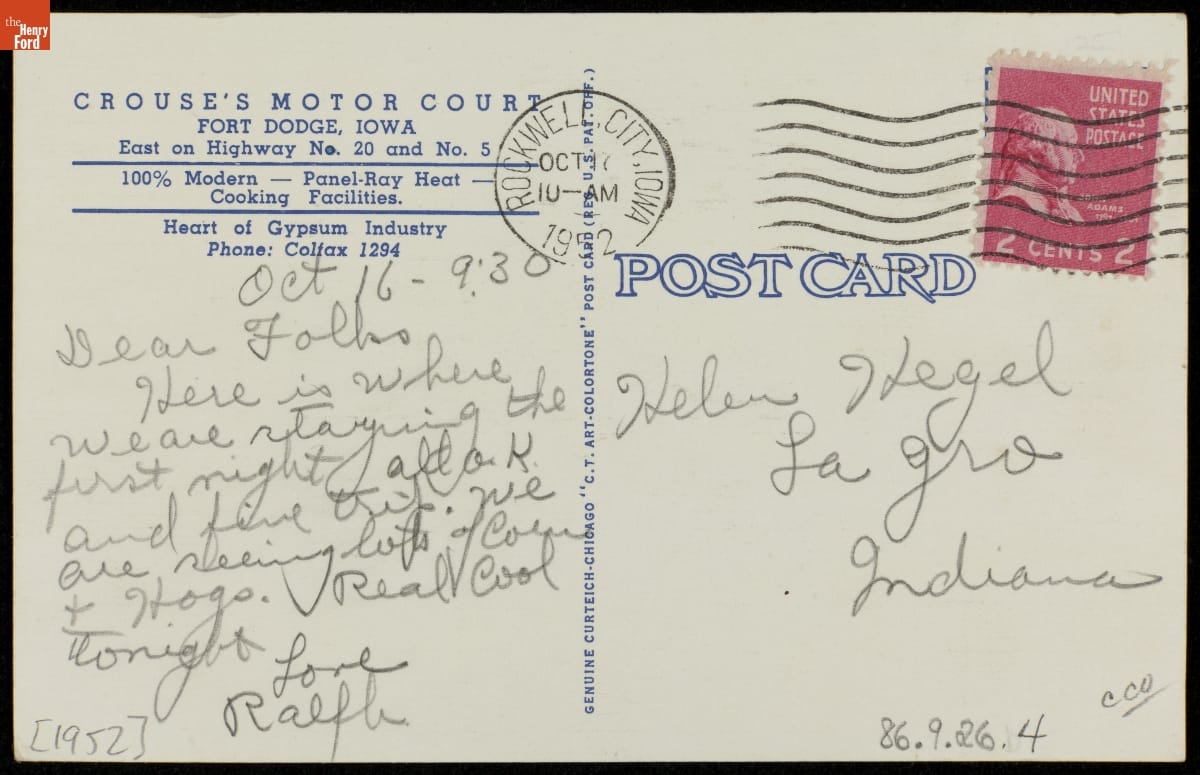 the
Henry
Ford
CROUSE'S MOTOR COURT
FORT DODGE, IOWA
East on Highway No. 20 and No. 5
100% Modern — Panel-Ray Heat —
Cooking Facilities.
Heart of Gypsum Industry
Phone: Colfax 1294
Oct 16 - 9:30
Dear Folks
Here is where
we are staying the
first night all o.k.
and fine trip. We
are seeing lots of Corn
+ Hogs. Real Cool
tonight
Love
Ralph
[1952]
GENUINE CURTEICH-CHICAGO "C.T. ART-COLORTONE" POST CARD (REG. U.S. PAT. OFF.)
ROCKWELL CITY, IOWA
OCT 17
10-AM
1952
UNITED
STATES
POSTAGE
JOHN
ADAMS
2 CENTS 2
POST CARD
Helen Hegel
La gro
Indiana
cco
86.9.26.4